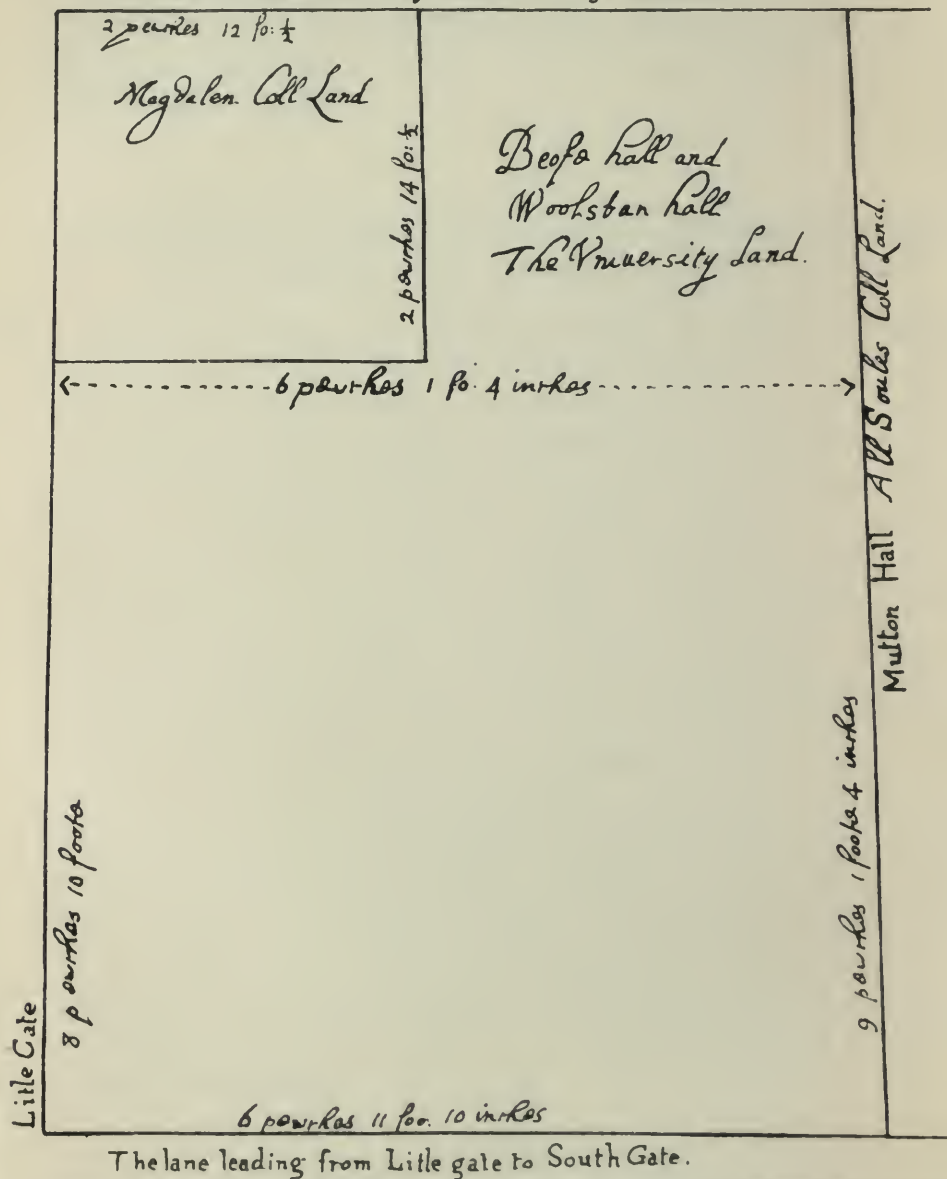 2 pearches 12 fo: ½
Magdalen Coll Land
2 pearches 14 fo: ½
Beofe hall and
Woolstan hall
The Vniuersity Land.
6 pearches 1 fo. 4 inches
Mutton Hall All Soules Coll Land.
9 pearches 1 foote 4 inches
8 pearches 10 foote
Litle Gate
6 pearches 11 foo. 10 inches
The lane leading from Litle gate to South Gate.